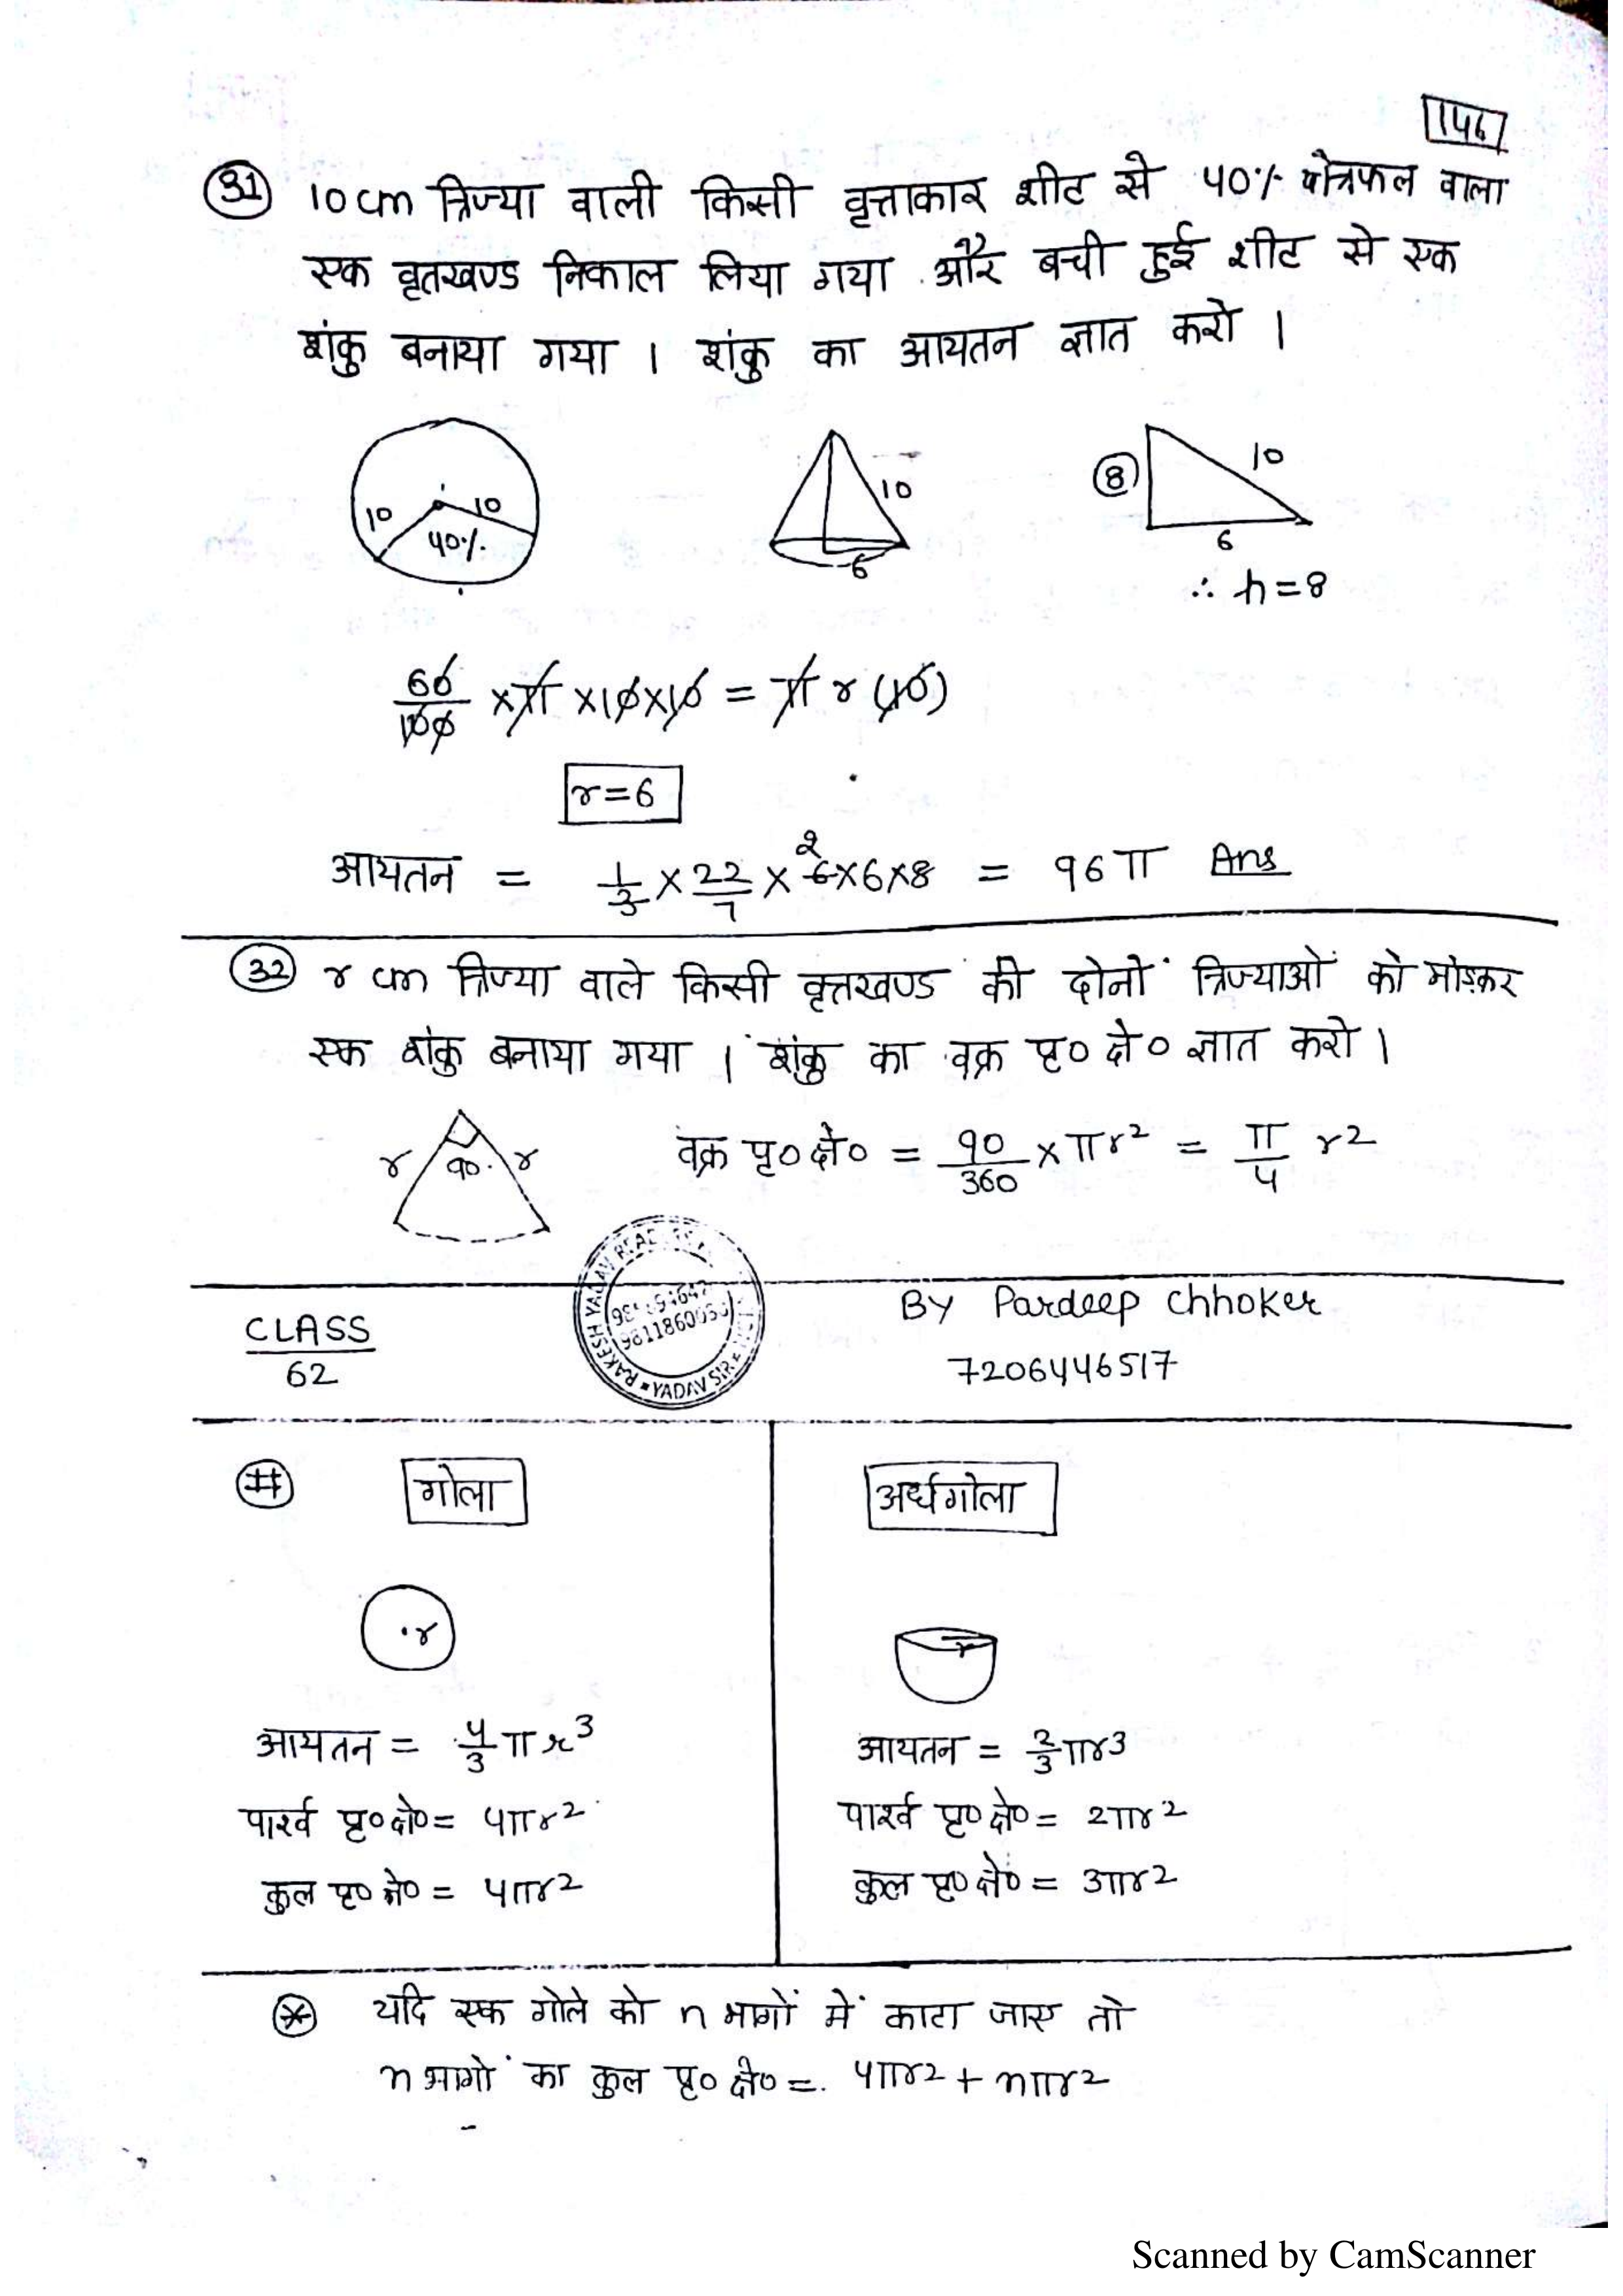 146
31 10 cm त्रिज्या वाली किसी वृत्ताकार शीट से 40% क्षेत्रफल वाला
एक वृतखण्ड निकाल लिया गया और बची हुई शीट से एक
शंकु बनाया गया । शंकु का आयतन ज्ञात करो ।
10 10 40%
10 6
8 10 6
∴ h = 8
60/100 × π × 10 × 10 = π r (10)
r = 6
आयतन = 1/3 × 22/7 × 6 2 × 6 × 8 = 96 π Ans
32 r cm त्रिज्या वाले किसी वृत्तखण्ड की दोनों त्रिज्याओं को मोड़कर
एक शंकु बनाया गया । शंकु का वक्र पृ० क्षे० ज्ञात करो ।
r 90 r
वक्र पृ० क्षे० = 90/360 × πr² = π/4 r²
CLASS
62
RAKESH YADAV READERS
9811860053
YADAV SIR
BY Pardeep Chhoker
7206446517
# गोला
अर्धगोला
r
r
आयतन = 4/3 π r³
पार्श्व पृ० क्षे० = 4πr²
कुल पृ० क्षे० = 4πr²
आयतन = 2/3 πr³
पार्श्व पृ० क्षे० = 2πr²
कुल पृ० क्षे० = 3πr²
* यदि एक गोले को n भागों में काटा जाए तो
n भागों का कुल पृ० क्षे० = 4πr² + nπr²
Scanned by CamScanner